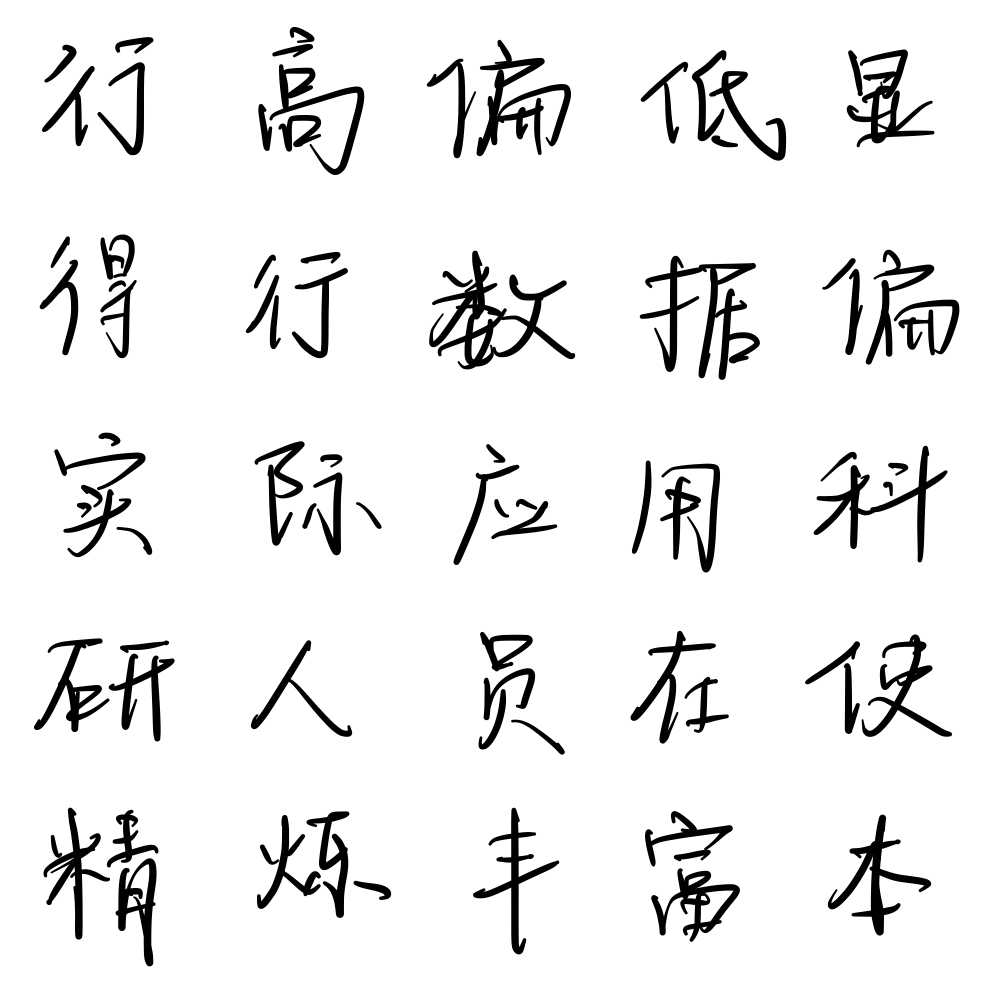 行高偏低显
得行数据偏
实际应用科
研人员在使
精炼丰富本